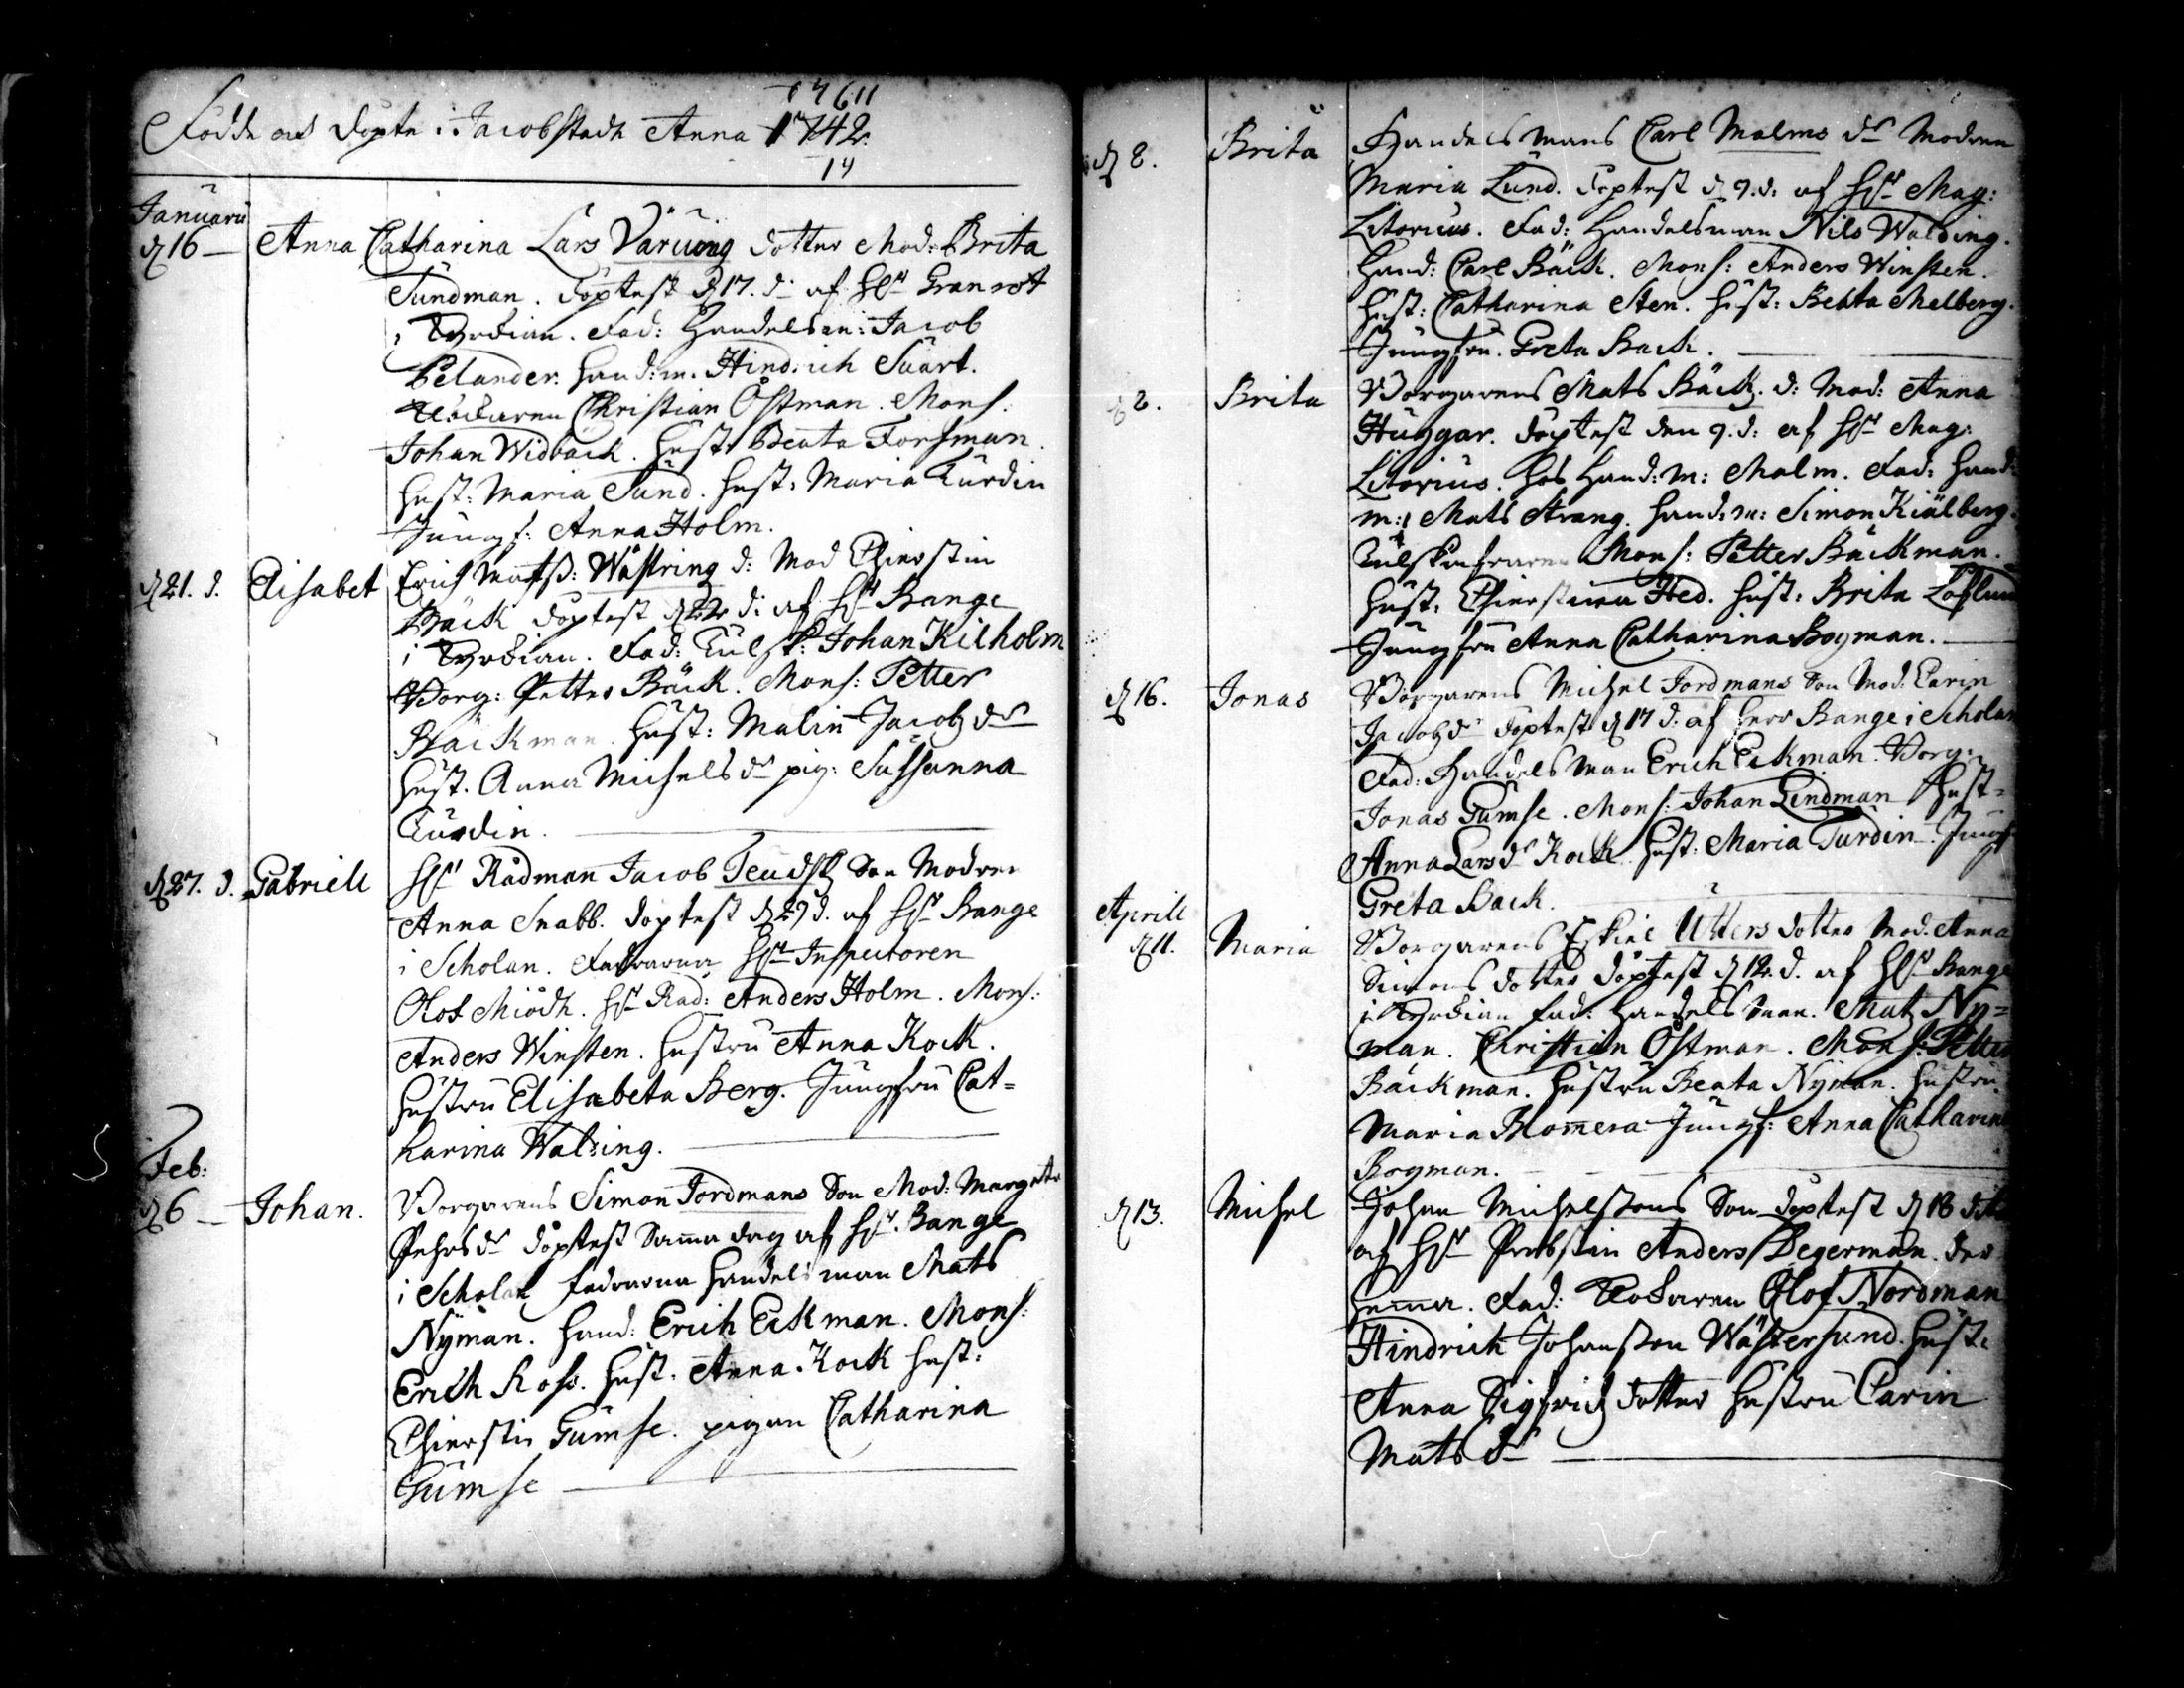 17611
Födde och döpte i Jacobstadh Anno 1742.
14
Januarii
d 16 — Anna Catharina Lars Varuong dotter Mod: Brita
Sundman. döptest d 17. d: af Hr Granrot
i Kyrckian. Fad: Handelsm: Jacob
Pelander. Hand: m. Hindrich Suart.
Christian Östman. Mons:
Johan Widbäck. Hust: Beata Forsman.
Hust: Maria Sund. Hust: Maria Turdin
Jungf: Anna Holm.
d 21. d. Elisabet Erich Matß: Wästring d: Mod Chierstin
Bäck döptest d 22 d: af Hr Bange
i Kyrckian. Fad: Tulsk: Johan Kilholm
Borg: Petter Bäck. Mons: Petter
Bäckman. Hust: Malin Jacobzdr
Hust. Anna Michelsdr pig: Sussanna
Turdin.
d 27. d. Gabriell Hr Rådman Jacob Teudsk Son Modren
Anna Snabb. döptest d 29 d. af Hr Bange
i Scholan. Faddrarna Hr Inspectoren
Olof Miödh. Hr Råd: Anders Holm. Mons:
Anders Winsten. hustru Anna Kock.
hustru Elisabeta Berg. Jungfru Cat=
harina Walding.
Feb:
d 6 — Johan. Borgarens Simon Jordmans Son Mod: Margeta
Pehrsdr döptest samma dag af Hr Bange
i Scholan Faddrarna Handelsman Mats
Nyman. Hand: Erich Eckman. Mons:
Erich Ross. Hust. Anna Kock Hust:
Chierstin Gumse. pigan Catharina
Gumse
d 8. Brita Handelsmans Carl Malms dr Modren
Maria Lund. döptest d 9. d: af Hr Mag:
Litorius. Fad: Handelsman Nils Walding.
Hand: Carl Bäck. Mons: Anders Winsten.
Hust: Catharina Sten. Hust: Beata Melberg.
Jungfru. Greta Back.
8. Brita Borgarens Mats Bäck. d: Mod: Anna
Huggar. döptest den 9. d: af Hr Mag:
Litorius. hos Hand: m: Malm. Fad: Hand:
m: Mats Strang. Hand: m: Simon Kiälberg.
Mons: Petter Bäckman.
Hust: Chierstina Hed. Hust: Brita Löflund
Jungfru Anna Catharina Bogman.
d 16. Jonas Borgarens Michel Jordmans Son Mod: Carin
Jacobzdr döptest d 17 d. af Herr Bange i Scholan
Fad: Handelsman Erich Eckman. Borg:
Jonas Gumse. Mons: Johan Lindman Hust=
Anna Larsdr Kock. Hust: Maria Turdin. Jungf
Greta Back.
Aprill
d 11. Maria Borgarens Eskiel Utters dotter Mod. Anna
Simons dotter döptest d 12. d. af Hr Bange
i Kyrckian Fad: Handelsman. Matz Ny=
man. Christian Östman. Mons: Petter
Bäckman. Hustru Beata Nyman. Hustru
Maria Blomera Jungf: Anna Catharina
Bogman.
d 13. Michel Johan Michelssons Son döptest d 18 dito
af Hr Probsten Anders Degerman. der
hemma. Fad: Olof Nordman
Hindrich Johansson Wästersund. Hust:
Anna Sigfridz dotter Hustru Carin
Matsdr